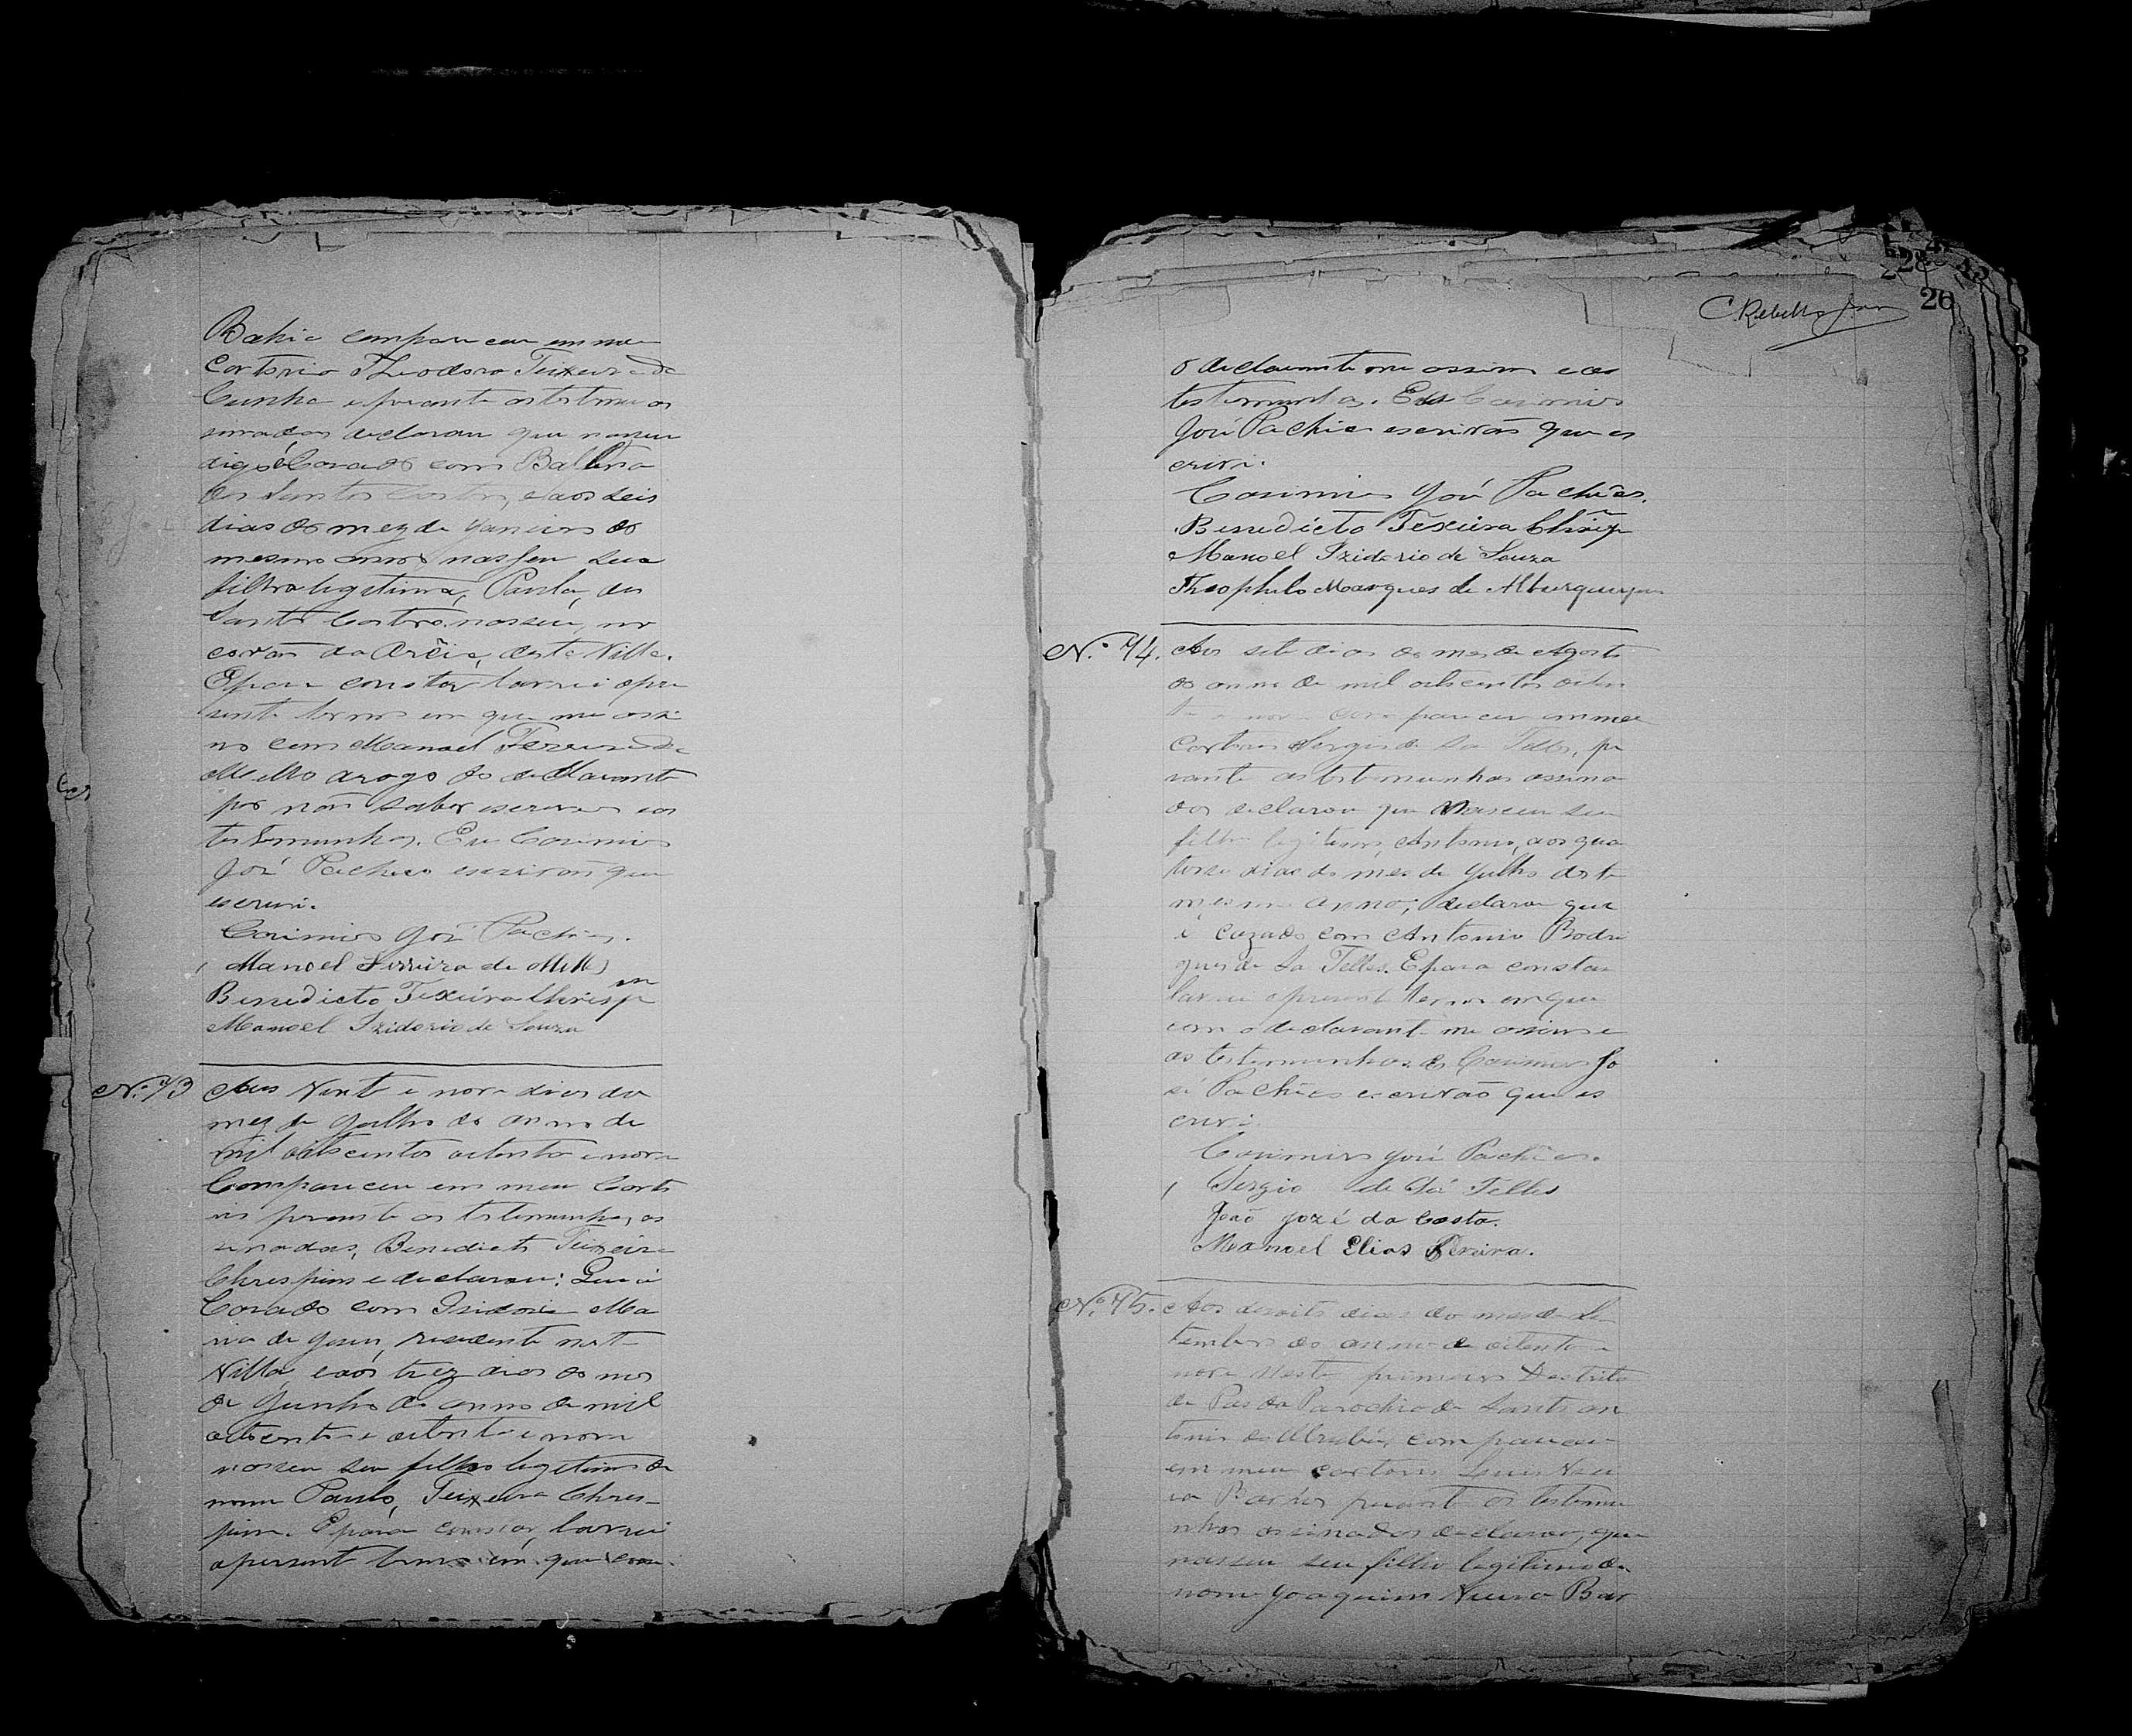 Bahia compareceu em meu
Cartorio Theodoro Teixeira da
Cunha e perante as testemu as
sinadas declarou que nasceu
digo é Casado com Balbina
dos Santos Castro, e aos seis
dias do mez de Janeiro do
mesmo anno nasseu sua
filha legitima, Paula, dos
Santos Castro nasseu, no
da Arêia, desta Villa.
E para constar lavrei o pre
sente termo em que me assi
no com Manoel Ferreira de
Mello arogo do declarante
por não saber escrever e as
testemunhas. Eu Casimiro
José Pacheco escrivão que
escrevi.
Casimiro José Pacheco.
Manoel Ferreira de Mello
Benedicto Texeira Chrispim
Manoel Izidorio de Souza
Nº 73 Aos Vinte e nove dias do
mez de Julho do anno de
mil oitocentos oitenta e nove
Compareceu em meu Carto
rio perante as testemunhas as
sinadas, Benedicto Teixeira
Chrespim e declarou: Que é
Casado com Isidoria Ma
ria de Jesus, residente nesta
Villa, e aos trez dias do mes
de Junho do anno de mil
oitocentos e oitenta e nove
nasseu seu filho legitimo de
nome Paulo, Teixeira Chres-
pim. E para constar, lavrei
o persente termo em que com
C. Rebello
26
28
o declarante me assino e as
testemunhas. Eu Casimiro
José Pacheco escrivão que es
crevi.
Casimiro José Pacheco.
Benedicto Texeira Chrisp
Manoel Izidorio de Souza
Theophilo Marques de Alburquerque
N.º 74. Aos sete dias do mes de Agosto
do anno de mil oitocentos oiten
ta e nove compareceu em meu
Cartorio Sergio de Sá Telles, pe
rante as testemunhas assina
das declarou que Nasceu seu
filho legitimo, Antonio, aos qua
torze dias do mes de Julho deste
mesmo anno; declarou que
é cazado com Antonia Rodri
gues de Sa Telles. E para constar
lavrei o presente termo em que
com o declarante me assino e
as testemunhas. Eu Casimiro Jo
sé Pacheco escrivão que es
crevi.
Casimiro José Pacheco.
Sergio de Sá Telles
João Jozé da Costa.
Manoel Elias Pereira.
Nº 75. Aos desoito dias do mes de Se
tembro do anno de oitenta e
nove Neste primeiro Destrito
de Pas da Parochia de Santo An
tonio compareceu
em meu cartorio
perante as testemu
nhas assinadas declarou, que
nasseu seu filho legitimo de
nome Joaquim Bar